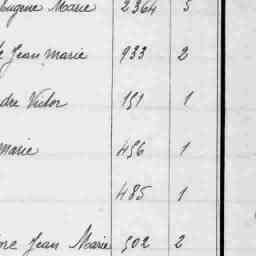 Eugène Marie 2364 5
Jean Marie 933 2
Victor 151 1
Marie 456 1
485 1
Jean Marie 502 2